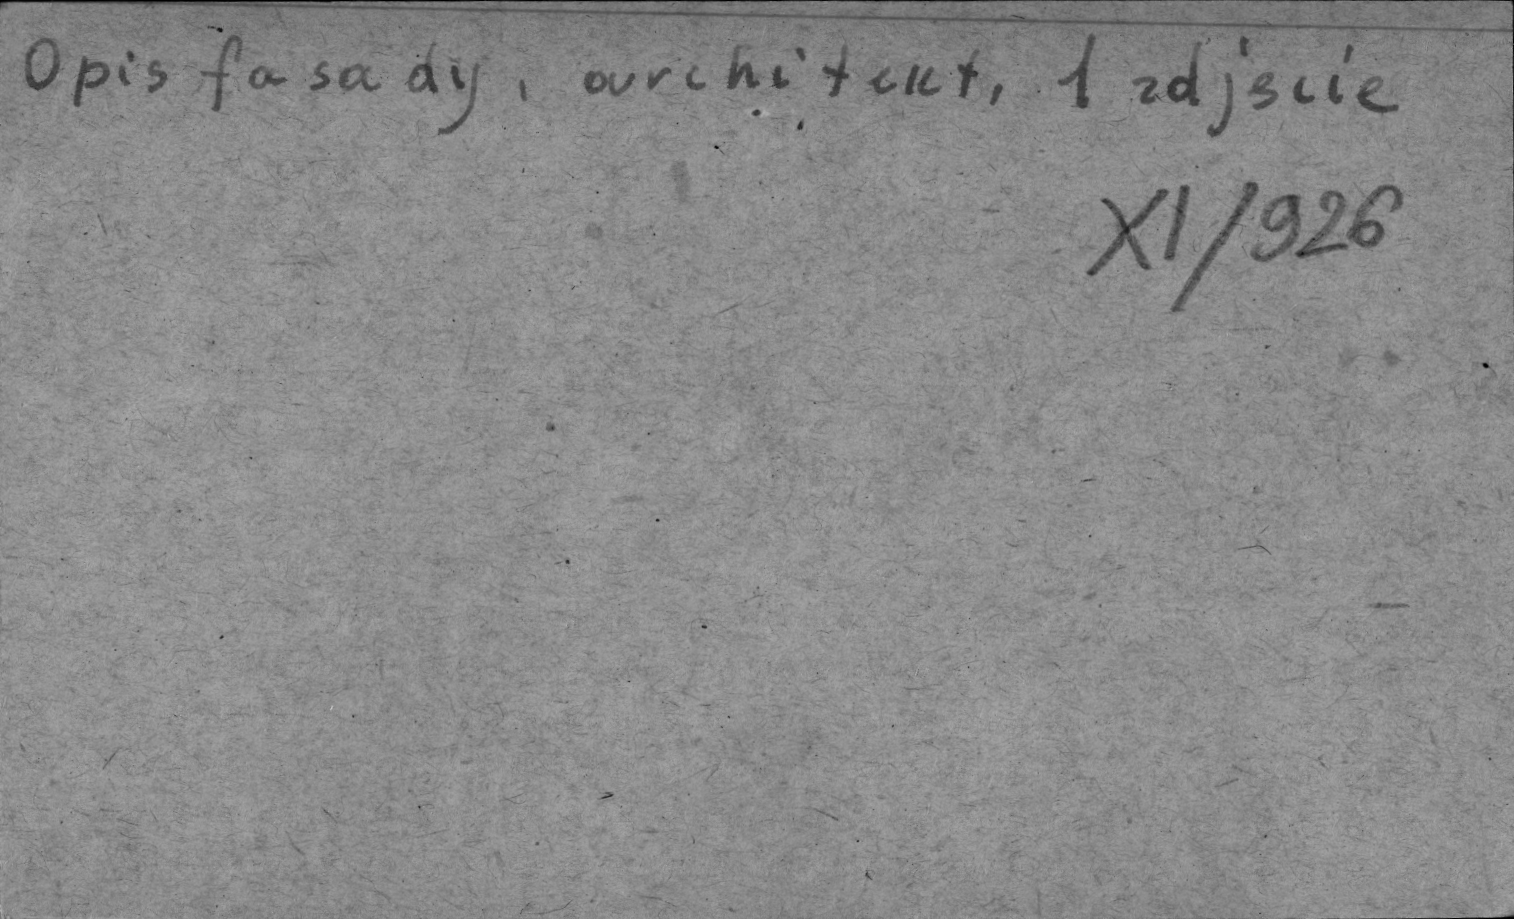 Opis fasady, architekt, 1 zdjscie
XI/926